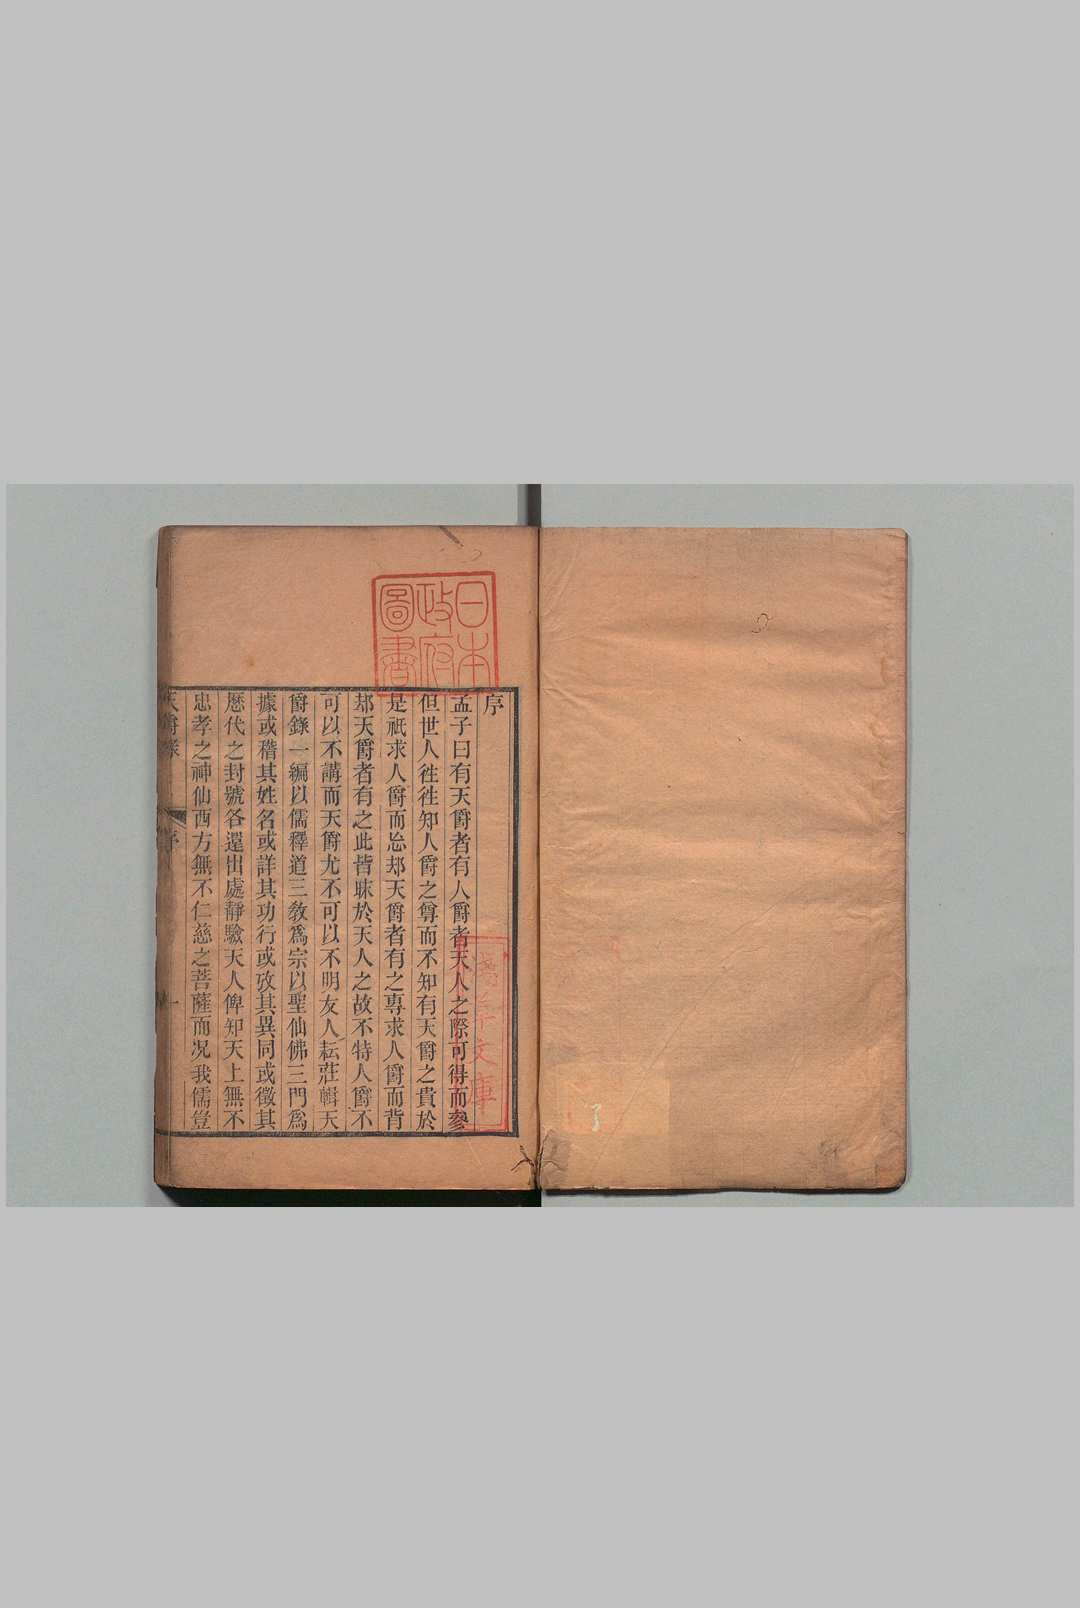 序
孟子曰有天爵者有人爵者天人之際可得而參
但世人徃徃知人爵之尊而不知有天爵之貴於
是祇求人爵而忘却天爵者有之專求人爵而背
却天爵者有之此皆昧於天人之故不特人爵不
可以不講而天爵尤不可以不明友人耘莊輯天
爵錄一編以儒釋道三敎爲宗以聖仙佛三門爲
據或稽其姓名或詳其功行或攷其異同或徵其
歷代之封號各還出處靜驗天人俾知天上無不
忠孝之神仙西方無不仁慈之菩薩而况我儒豈
天爵錄
序
一
日本
政府
圖書
文庫